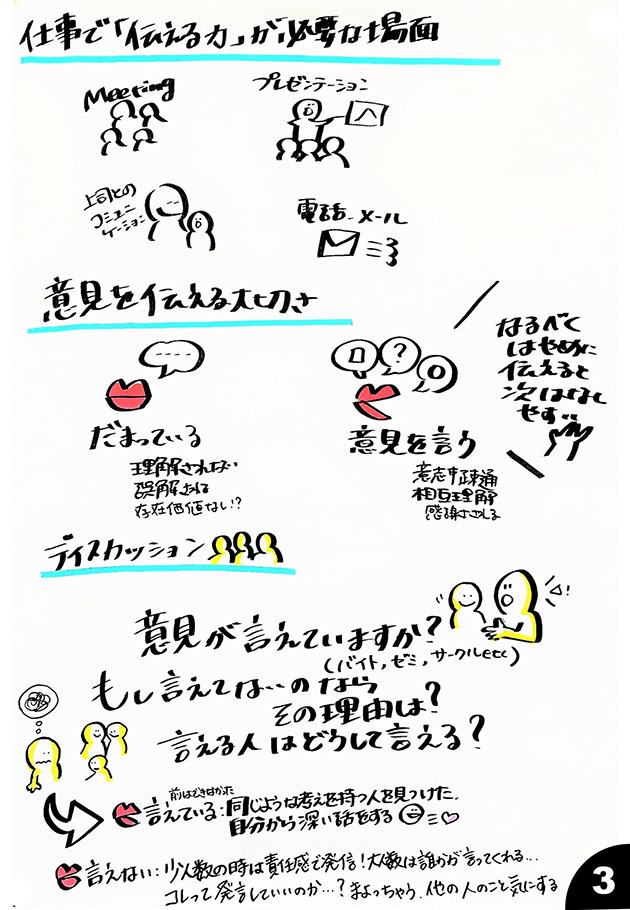 仕事で「伝える力」が必要な場面
Meeting
プレゼンテーション
上司との
コミュニ
ケーション
電話・メール
意見を伝える大切さ
なるべく
はやめに
伝えると
次はなし
やすい
だまっている
理解されない
誤解される
存在価値ない!?
?
意見を言う
意志疎通
相互理解
感謝される
ディスカッション
意見が言えていますか?
(バイト,ゼミ,サークルetc)
もし言えてないのなら
その理由は?
言える人はどうして言える?
前はできなかった
言えている:同じような考えを持つ人を見つけた.
自分から深い話をする
言えない:少人数の時は責任感で発信!大人数は誰かが言ってくれる...
コレって発言していいのか...?まよっちゃう.他の人のこと気にする
3